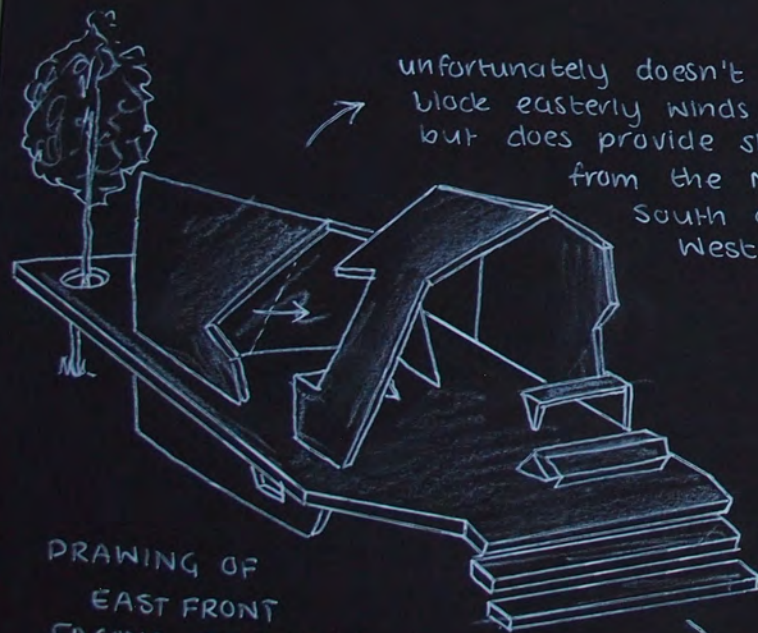 unfortunately doesn't
block easterly winds
but does provide
from the
south
West
DRAWING OF
EAST FRONT